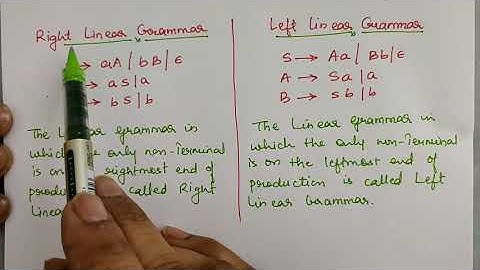 Right Linear Grammar
→ aA / bB / ε
→ aS | a
→ bS | b
The Linear grammar in
which the only non-Terminal
is on rightmost end of
produ called Right
Linea
Left Linear Grammar
S → Aa / Bb / ε
A → Sa / a
B → Sb / b
The Linear grammar in
which the only non-Terminal
is on the leftmost end of
production is called Left
Linear Grammar.